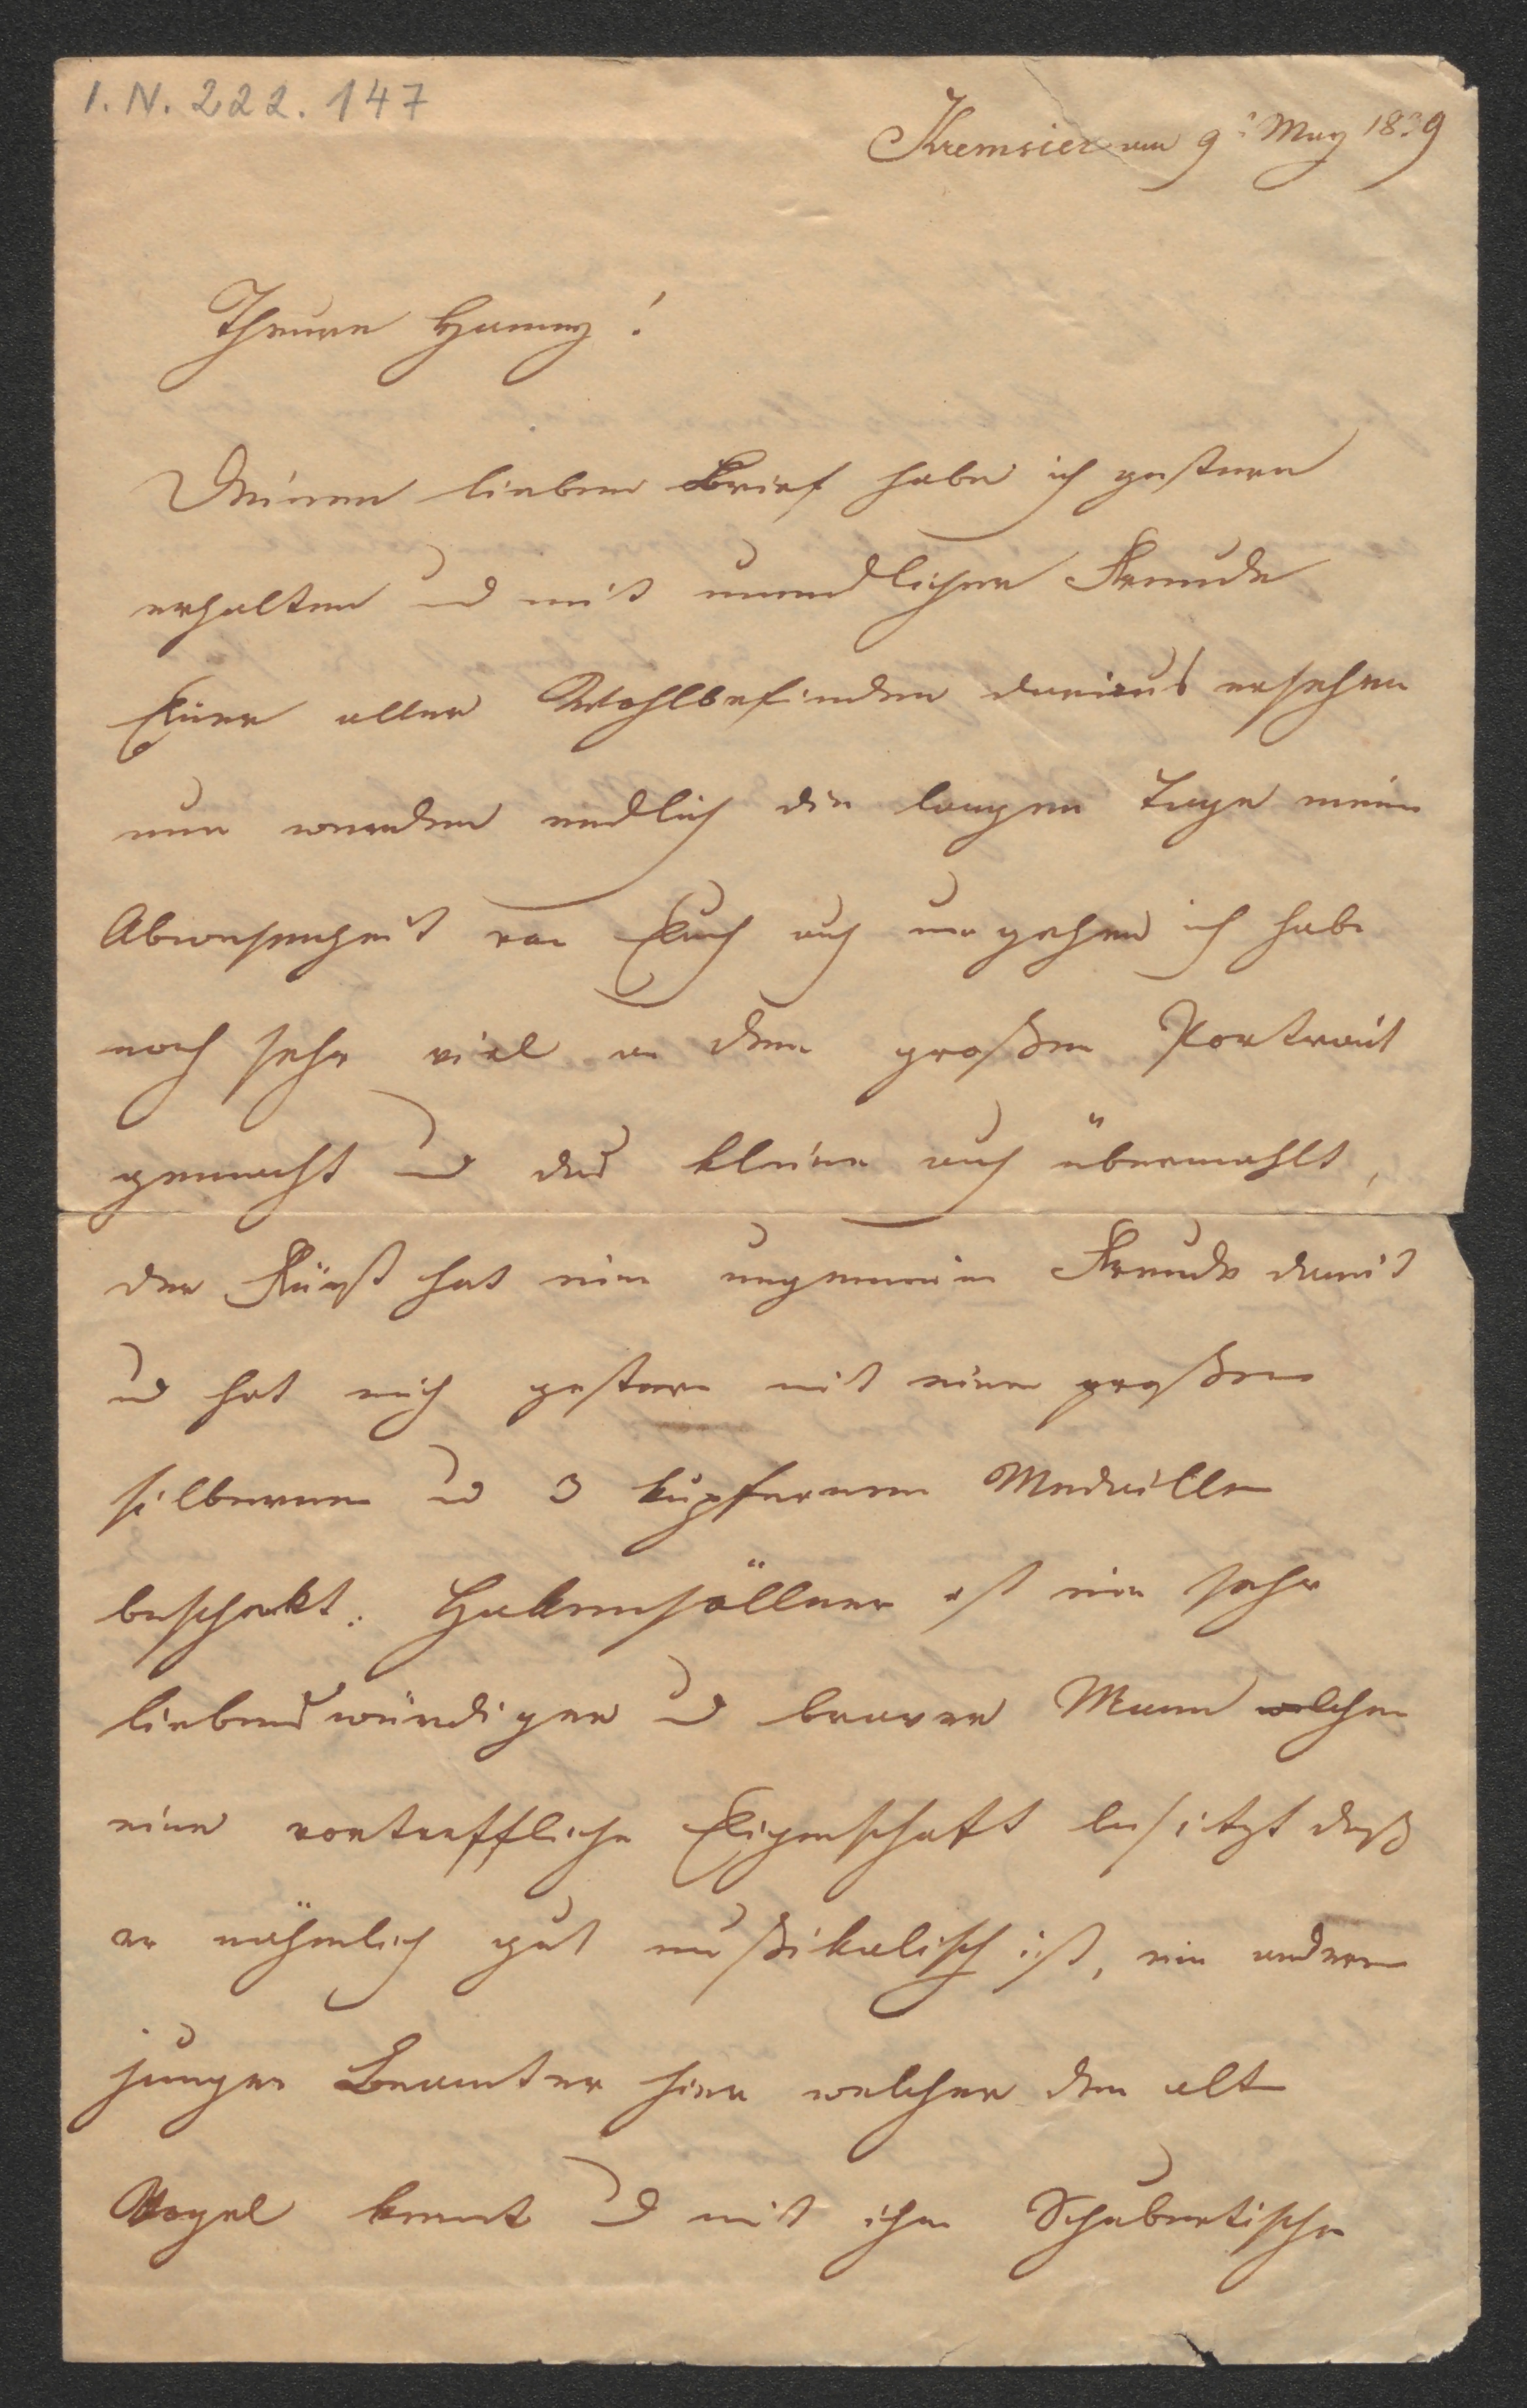 I.N. 222.147
Kremsier am 9: May 1839
Theure Hanny!
Deinen lieben Brief habe ich gestern
erhalten und mit unendlicher Freude
Euer aller Wohlbefinden daraus ersehen
nun werden endlich die langen Tage meine
Abwesenheit von Euch auch vergehen ich habe
noch sehr viel an dem großen Portrait
gemacht und das kleine auch übermahlt,
der Fürst hat eine ungemeine Freude damit
und hat mich gestern mit einer großen
silbernen und 3 kupfernen Medaillen
beschenkt. ist ein sehr
liebenswürdiger und braver Mann welcher
eine vortreffliche Eigenschaft besitzt daß
er nähmlich gut mußikalisch ist, ein anderer
junger Beamter hier welcher den alt
Vogel kennt und mit ihm Schubertische